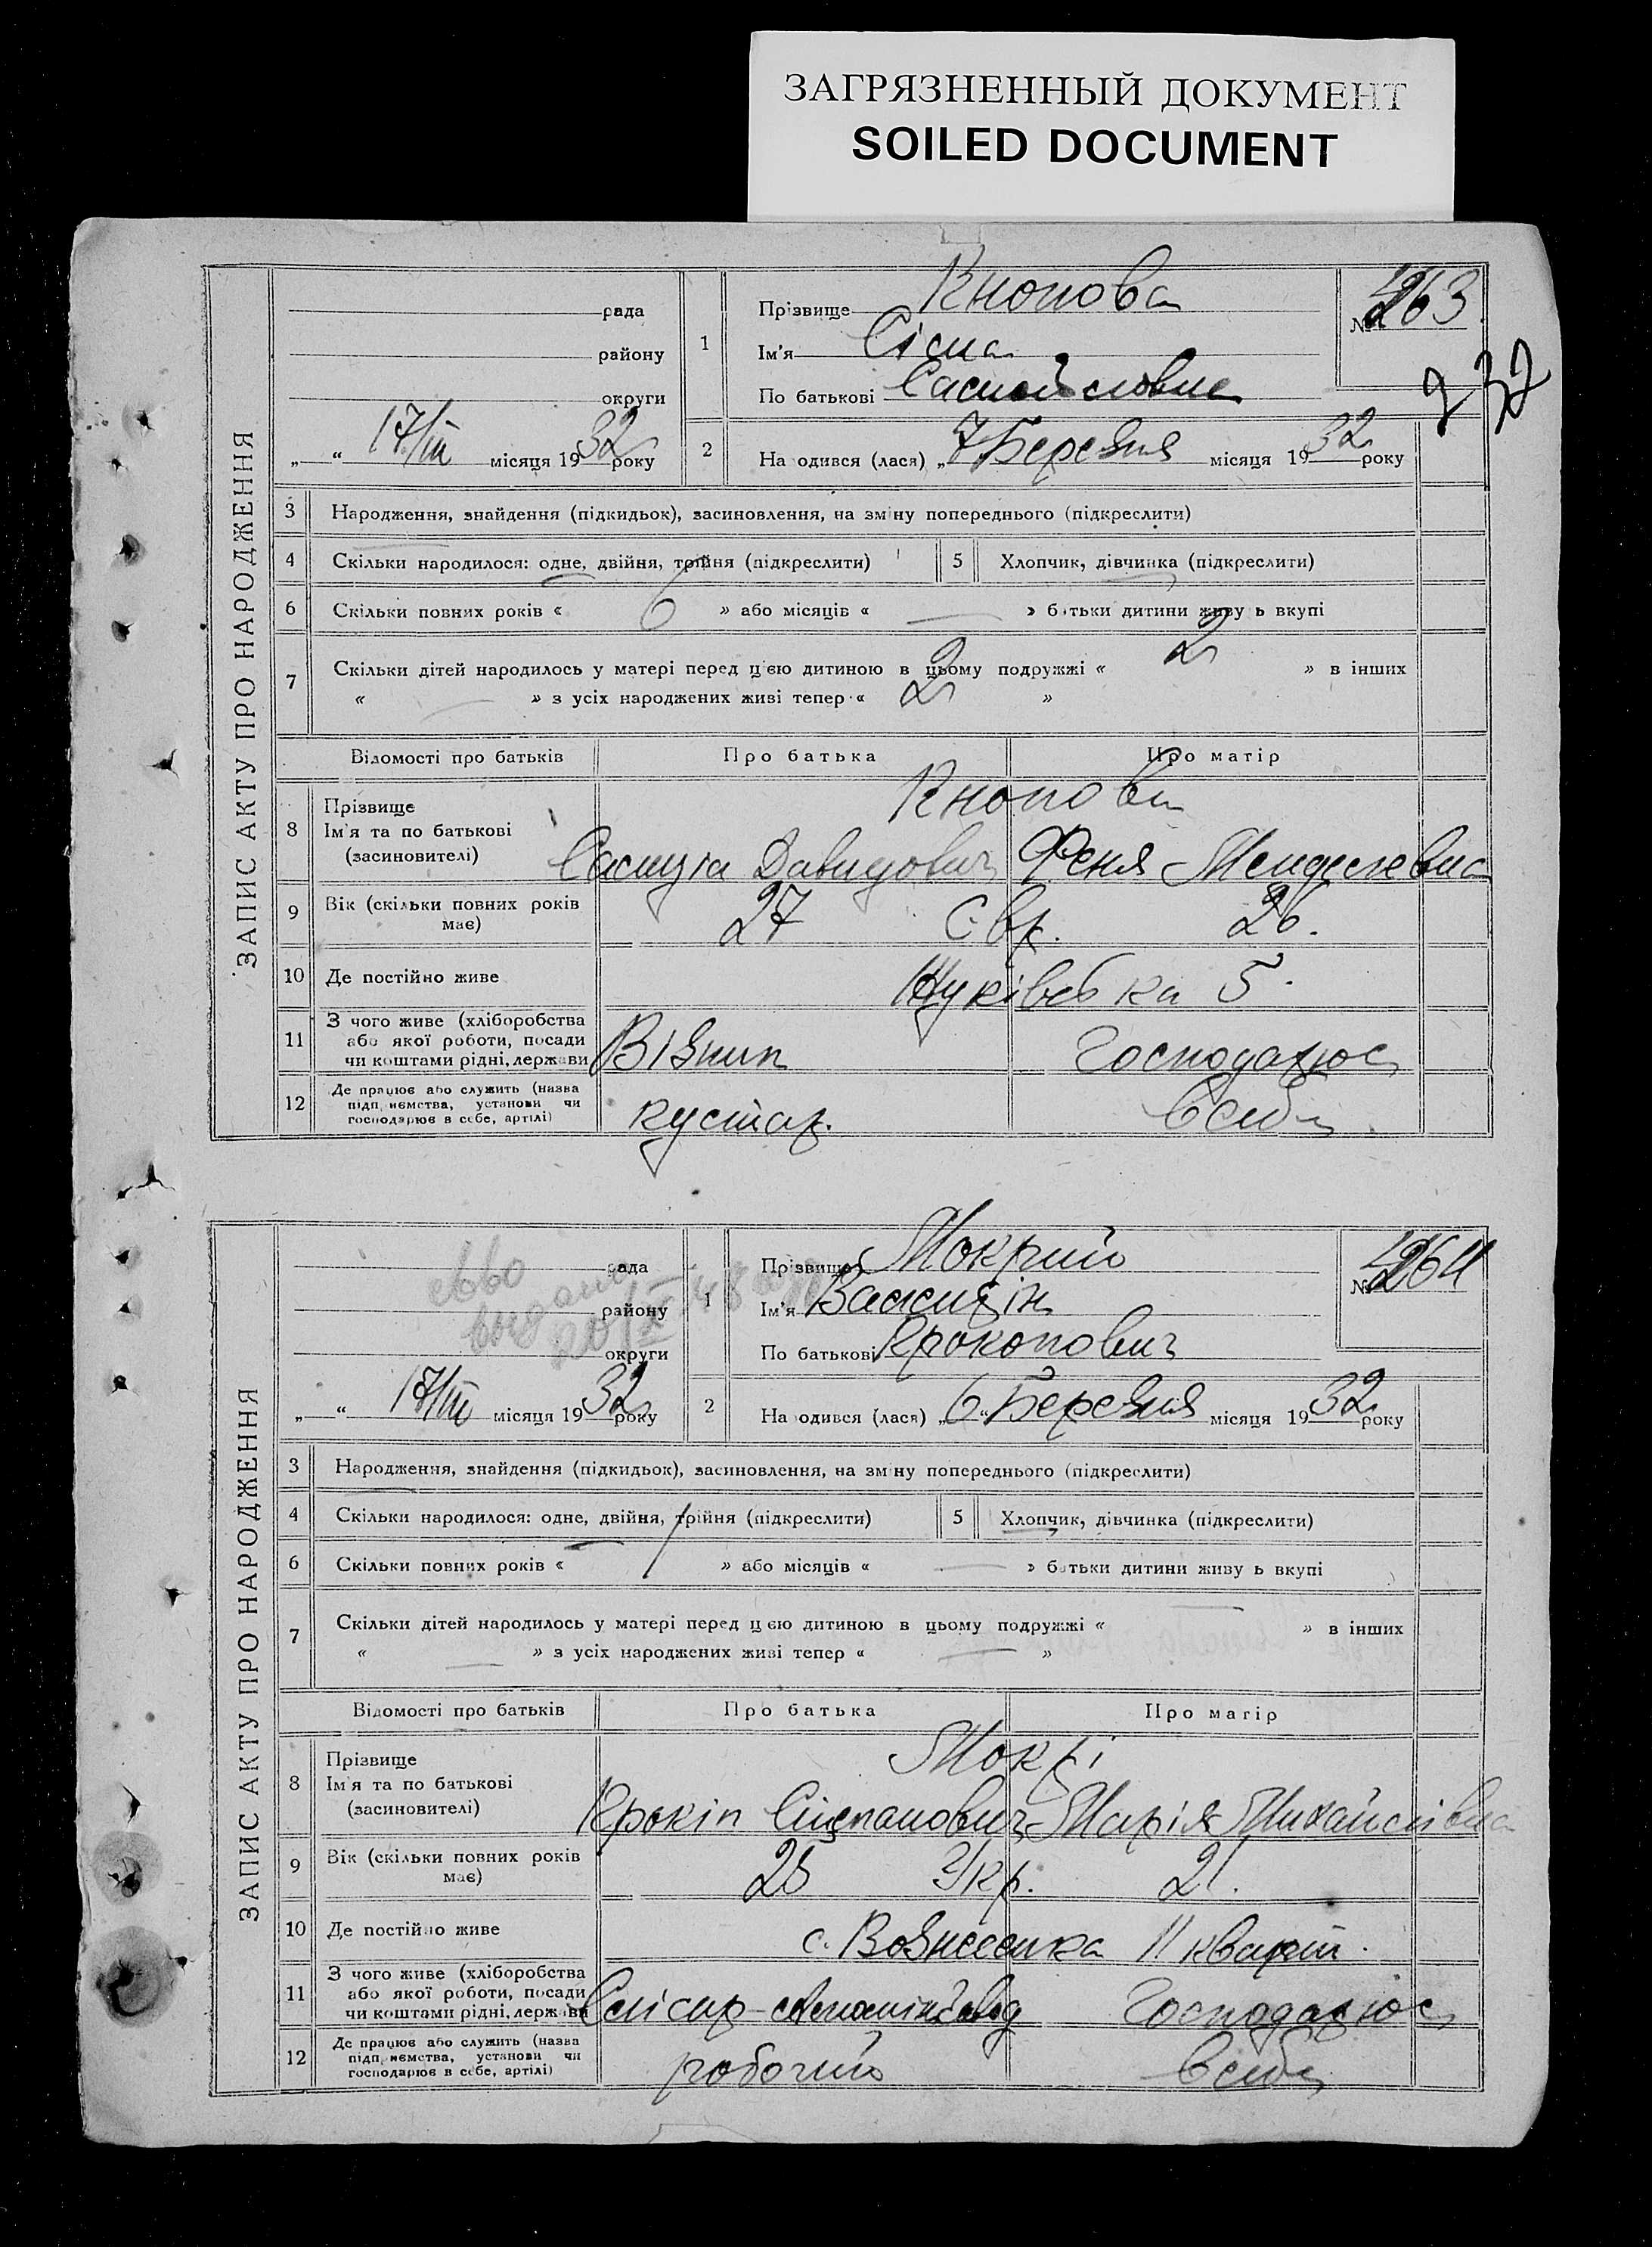 ЗАГРЯЗНЕННЫЙ ДОКУМЕНТ
SOILED DOCUMENT
ЗАПИС АКТУ ПРО НАРОДЖЕННЯ
рада
району
округи
„ “ 17/III місяця 1932 року
1
Прізвище Кнопова
Ім'я Сіма
По батькові
№ 263
237
2 Народився (лася) „7 Березня місяця 1932 року
3 Народження, знайдення (підкидьок), засиновлення, на зміну попереднього (підкреслити)
4 Скільки народилося: одне, двійня, трійня (підкреслити) 5 Хлопчик, дівчинка (підкреслити)
6 Скільки повних років « 6 » або місяців « — » батьки дитини живуть вкупі
7 Скільки дітей народилось у матері перед цією дитиною в цьому подружжі « 2 » в інших
« — » з усіх народжених живі тепер « 2 »
Відомості про батьків Про батька Про матір
8 Прізвище
Ім'я та по батькові
(засиновителі)
Кнопови
Давидович Феня Менделевна
9 Вік (скільки повних років має) 27 Євр. 26.
10 Де постійно живе 5.
11 З чого живе (хліборобства або якої роботи, посади чи коштами рідні, держави Візник Господарює
12 Де працює або служить (назва підприємства, установи чи господарює в себе, артілі) кустар. в себе
ЗАПИС АКТУ ПРО НАРОДЖЕННЯ
рада
району
округи
„ “ 17/III місяця 1932 року
1
Прізвище Мокрий
Ім'я
По батькові Прокопович
№ 264
2 Народився (лася) „6“ Березня місяця 1932 року
3 Народження, знайдення (підкидьок), засиновлення, на зміну попереднього (підкреслити)
4 Скільки народилося: одне, двійня, трійня (підкреслити) 5 Хлопчик, дівчинка (підкреслити)
6 Скільки повних років « 1 » або місяців « — » батьки дитини живуть вкупі
7 Скільки дітей народилось у матері перед цією дитиною в цьому подружжі « — » в інших
« — » з усіх народжених живі тепер « — »
Відомості про батьків Про батька Про матір
8 Прізвище
Ім'я та по батькові
(засиновителі)
Мокрі
Прокіп Степанович Марія Михайлівна
9 Вік (скільки повних років має) Укр. 21.
10 Де постійно живе с. Вознесенка 11 кварт.
11 З чого живе (хліборобства або якої роботи, посади чи коштами рідні, держави Слісар Господарює
12 Де працює або служить (назва підприємства, установи чи господарює в себе, артілі) робочий в себе